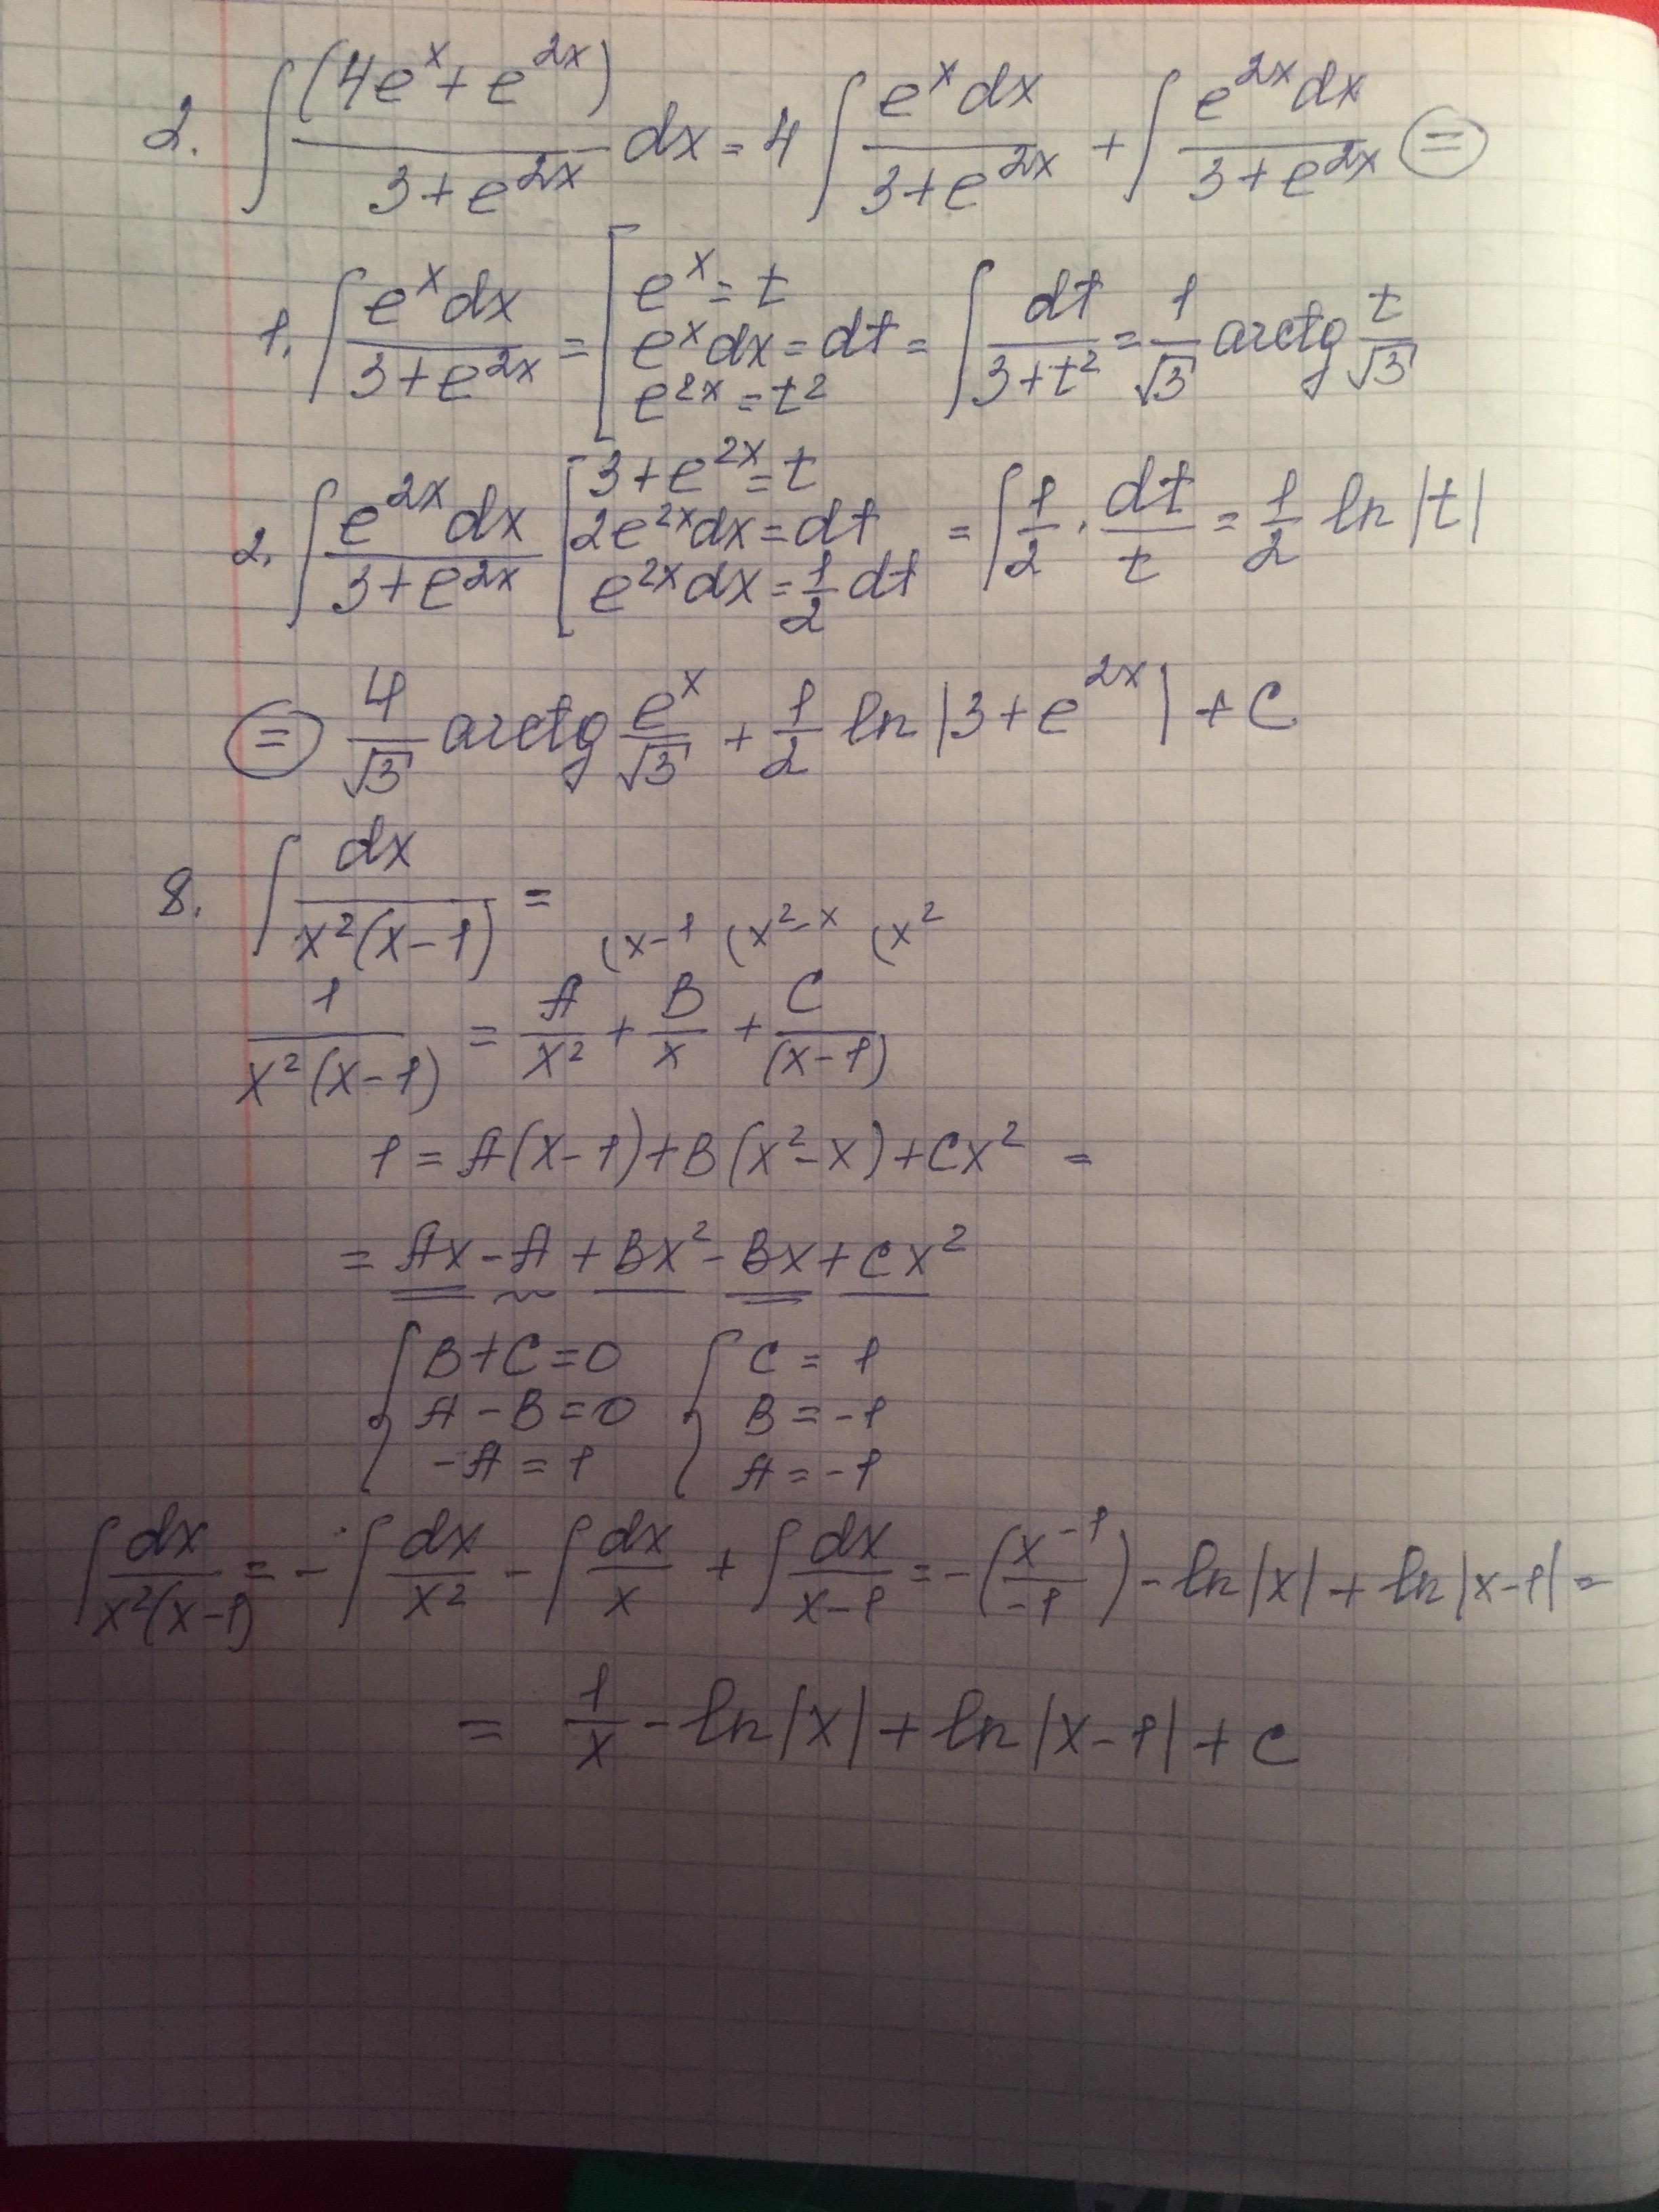 2. ∫ (4e^x + e^{2x}) / (3 + e^{2x}) dx = 4 ∫ e^x dx / (3 + e^{2x}) + ∫ e^{2x} dx / (3 + e^{2x}) (=)
1. ∫ e^x dx / (3 + e^{2x}) = [ e^x = t ; e^x dx = dt ; e^{2x} = t^2 = ∫ dt / (3 + t^2) = 1/√3 arctg t/√3
2. ∫ e^{2x} dx / (3 + e^{2x}) [ 3 + e^{2x} = t ; 2e^{2x} dx = dt ; e^{2x} dx = 1/2 dt = ∫ 1/2 · dt/t = 1/2 ln |t|
(=) 4/√3 arctg e^x/√3 + 1/2 ln |3 + e^{2x}| + C
8. ∫ dx / (x^2(x-1)) =
(x-1 (x^2-x (x^2
1 / (x^2(x-1)) = A/x^2 + B/x + C/(x-1)
1 = A(x-1) + B(x^2-x) + Cx^2 =
= Ax - A + Bx^2 - Bx + Cx^2
{ B+C=0 { C = 1
A - B = 0 B = -1
-A = 1 A = -1
∫ dx / (x^2(x-1)) = - ∫ dx/x^2 - ∫ dx/x + ∫ dx/(x-1) = - (x^{-1}/-1) - ln|x| + ln|x-1| =
= 1/x - ln|x| + ln|x-1| + C